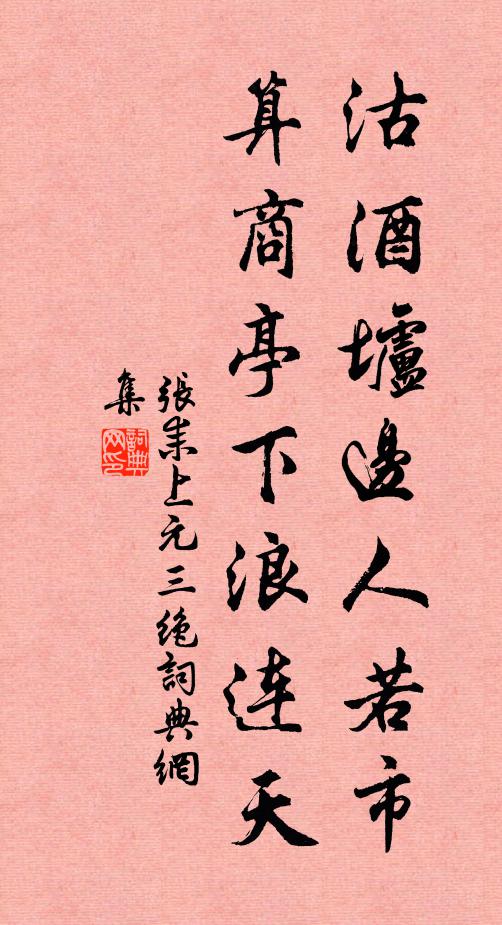 沽酒壚邊人若市
算商亭下浪連天
張耒上元三絶詞典網
集
詞典網印